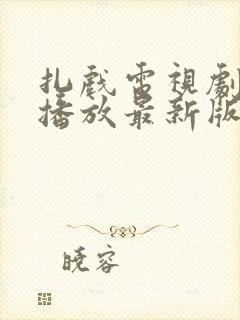 扎戲電視劇
播放最新版
曉容